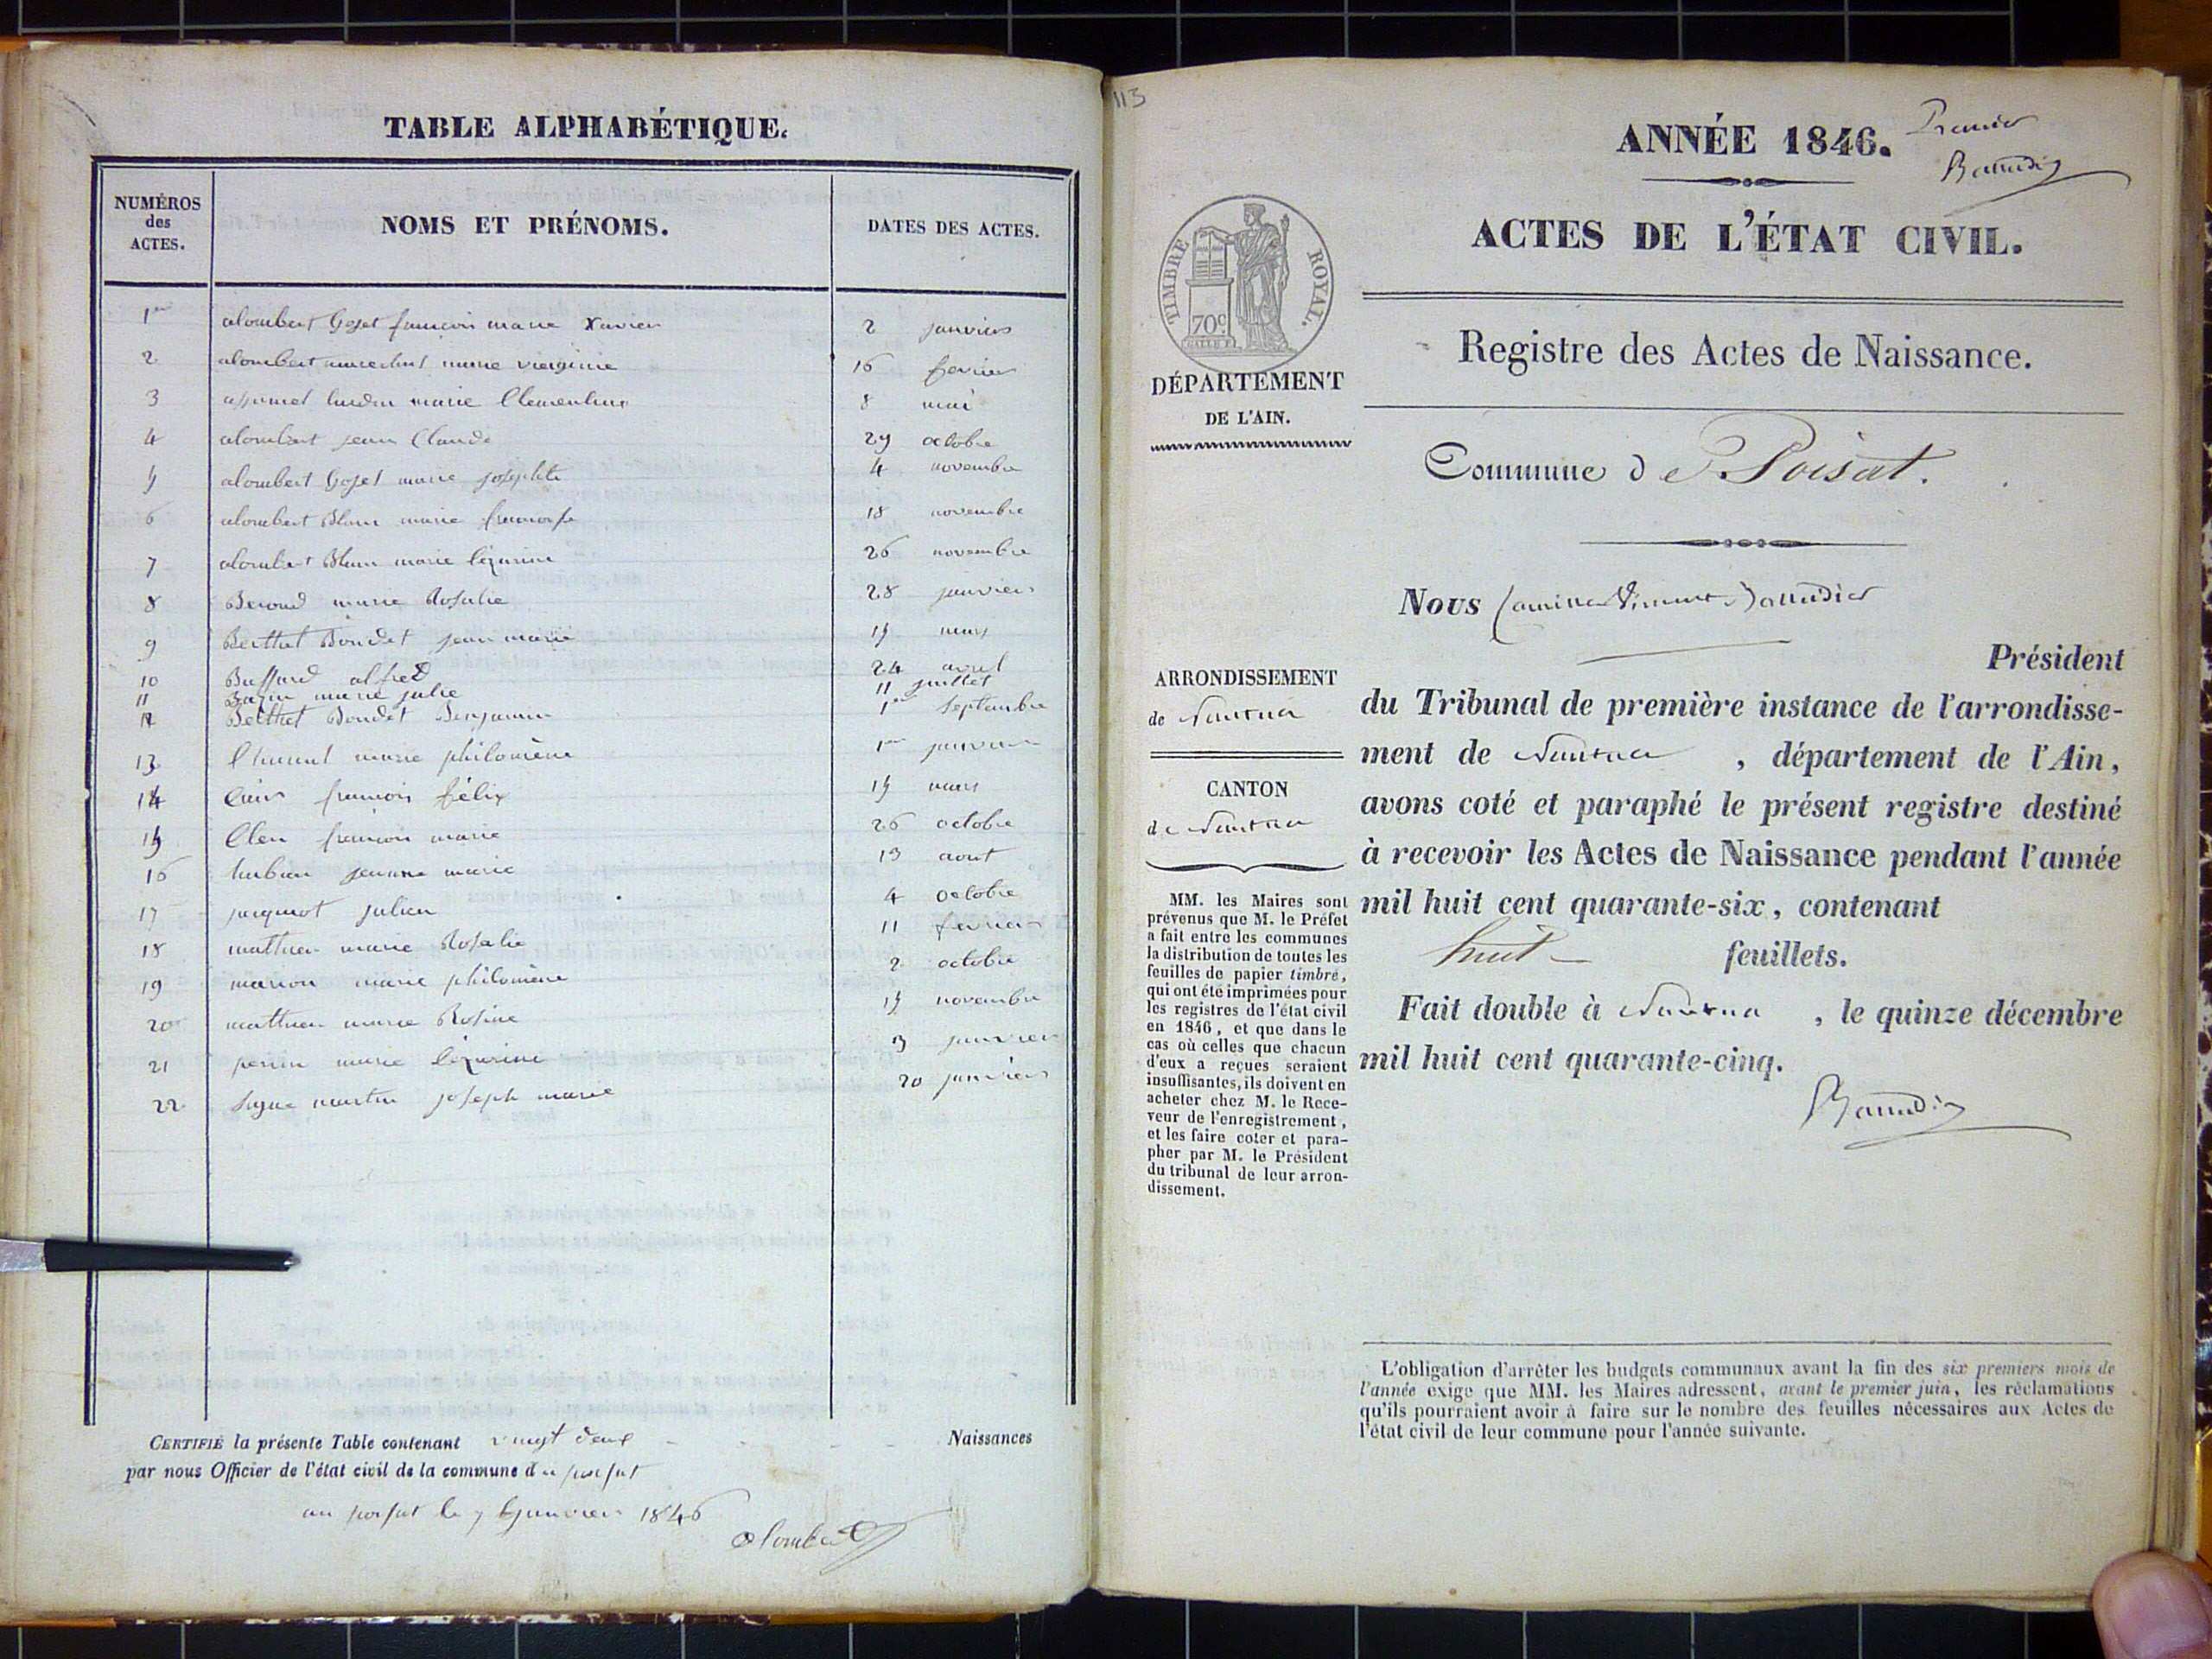 TABLE ALPHABÉTIQUE.
NUMÉROS
des
ACTES.
NOMS ET PRÉNOMS.
DATES DES ACTES.
1er alombert Gojet françois marie Xavier 2 janviers
2 alombert marie virginie 16 fevrier
3 marie Clementine 8 mai
4 alombert jean Claude 29 octobre
5 alombert Gojet marie josephte 4 novembre
6 alombert Blanc marie françoise 18 novembre
7 alombert Blanc marie 26 novembre
8 Beroud marie Rosalie 28 janvier
9 Berthet Bondet jean marie 15 mars
10 Buffard alfred 24 avril
11 Bazin marie julie 11 juillet
12 Berthet Bondet Benjamin 1er Septembre
13 marie philomène 1er janvier
14 françois félix 15 mars
15 françois marie 26 octobre
16 jeanne marie 13 aout
17 jacquiot julien 4 octobre
18 mathieu marie Rosalie 11 fevrier
19 marion marie philomène 2 octobre
20 mathieu marie Rosine 15 novembre
21 perrin marie 3 janvier
22 martin joseph marie 20 janvier
CERTIFIÉ la présente Table contenant vingt deux Naissances
par nous Officier de l'état civil de la commune du poisat
au poisat le 7 janvier 1846
alombert
113
ANNÉE 1846.
Premier
Baudin
ACTES DE L'ÉTAT CIVIL.
TIMBRE ROYAL.
70c
Registre des Actes de Naissance.
DÉPARTEMENT
DE L'AIN.
Commune de Poisat.
Nous
Président
du Tribunal de première instance de l'arrondisse-
ment de Nantua, département de l'Ain,
avons coté et paraphé le présent registre destiné
à recevoir les Actes de Naissance pendant l'année
mil huit cent quarante-six, contenant
huit feuillets.
Fait double à Nantua, le quinze décembre
mil huit cent quarante-cinq.
ARRONDISSEMENT
de Nantua
CANTON
de Nantua
MM. les Maires sont
prévenus que M. le Préfet
a fait entre les communes
la distribution de toutes les
feuilles de papier timbré,
qui ont été imprimées pour
les registres de l'état civil
en 1846, et que dans le
cas où celles que chacun
d'eux a reçues seraient
insuffisantes, ils doivent en
acheter chez M. le Rece-
veur de l'enregistrement,
et les faire coter et para-
pher par M. le Président
du tribunal de leur arron-
dissement.
L'obligation d'arrêter les budgets communaux avant la fin des six premiers mois de
l'année exige que MM. les Maires adressent, avant le premier juin, les réclamations
qu'ils pourraient avoir à faire sur le nombre des feuilles nécessaires aux Actes de
l'état civil de leur commune pour l'année suivante.